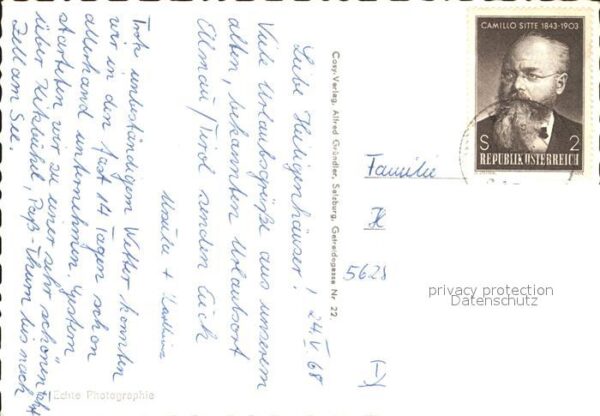 Liebe Heiligenhäuser!
24. V. 68
Viele Urlaubsgrüße aus unserem
alten, bekannten Urlaubsort
Ellmau/Tirol senden Euch
Ursula +
Trotz unbeständigem Wetter konnten
wir in den fast 14 Tagen schon
allerhand unternehmen. Gestern
starteten wir zu einer sehr schönen Fahrt
über Kitzbühel, Paß-Thurn bis nach
Zell am See.
Echte Photographie
Cosy-Verlag, Alfred Gründler, Salzburg, Getreidegasse Nr. 22.
CAMILLO SITTE 1843-1903
S 2
REPUBLIK ÖSTERREICH
Familie
H
5628
privacy protection
Datenschutz